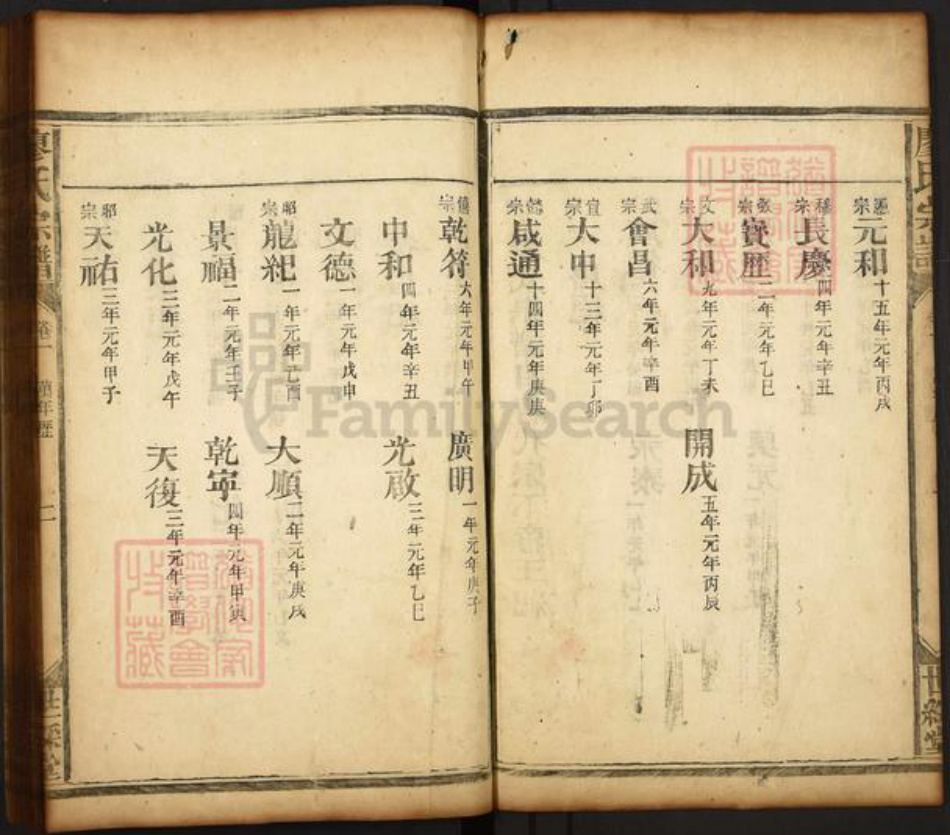 廖氏宗譜
憲宗 元和 十五年元年丙戌
穆宗 長慶 四年元年辛丑
敬宗 寶歷 二年元年乙巳
文宗 大和 九年元年丁未 開成 五年元年丙辰
武宗 會昌 六年元年辛酉
宣宗 大中 十三年元年丁卯
懿宗 咸通 十四年元年庚庚
世綵堂
僖宗 乾符 六年元年甲午 廣明 一年元年庚子
中和 四年元年辛丑 光啟 三年元年乙巳
文德 一年元年戊申
昭宗 龍紀 一年元年己酉 大順 二年元年庚戌
景福 二年元年壬子 乾寧 四年元年甲寅
光化 三年元年戊午 天復 三年元年辛酉
昭宗 天祐 三年元年甲子
廖氏宗譜 卷一 年歷 二 世綵堂
FamilySearch